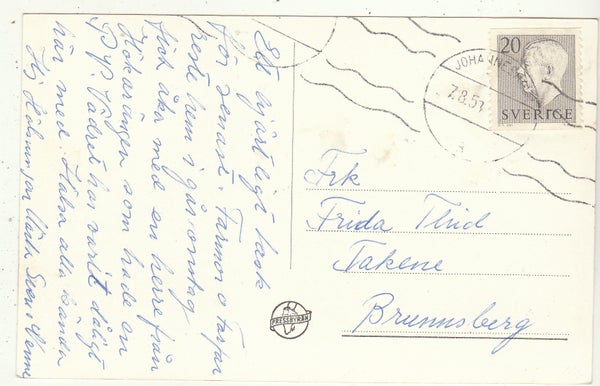 Ett hjärtligt tack
för senast. Farmor o farfar
reste hem i går, onsdag
fick åka med en herre från
Hökärängen som hade en
P.V. Vädret har varit dåligt
här med. Hälsa alla kända
Hej
20
SVERIGE
JOHANNE
7.8.5
Frk
Frida Thid
Takene
Brunnsberg
PRESSBYRÅN